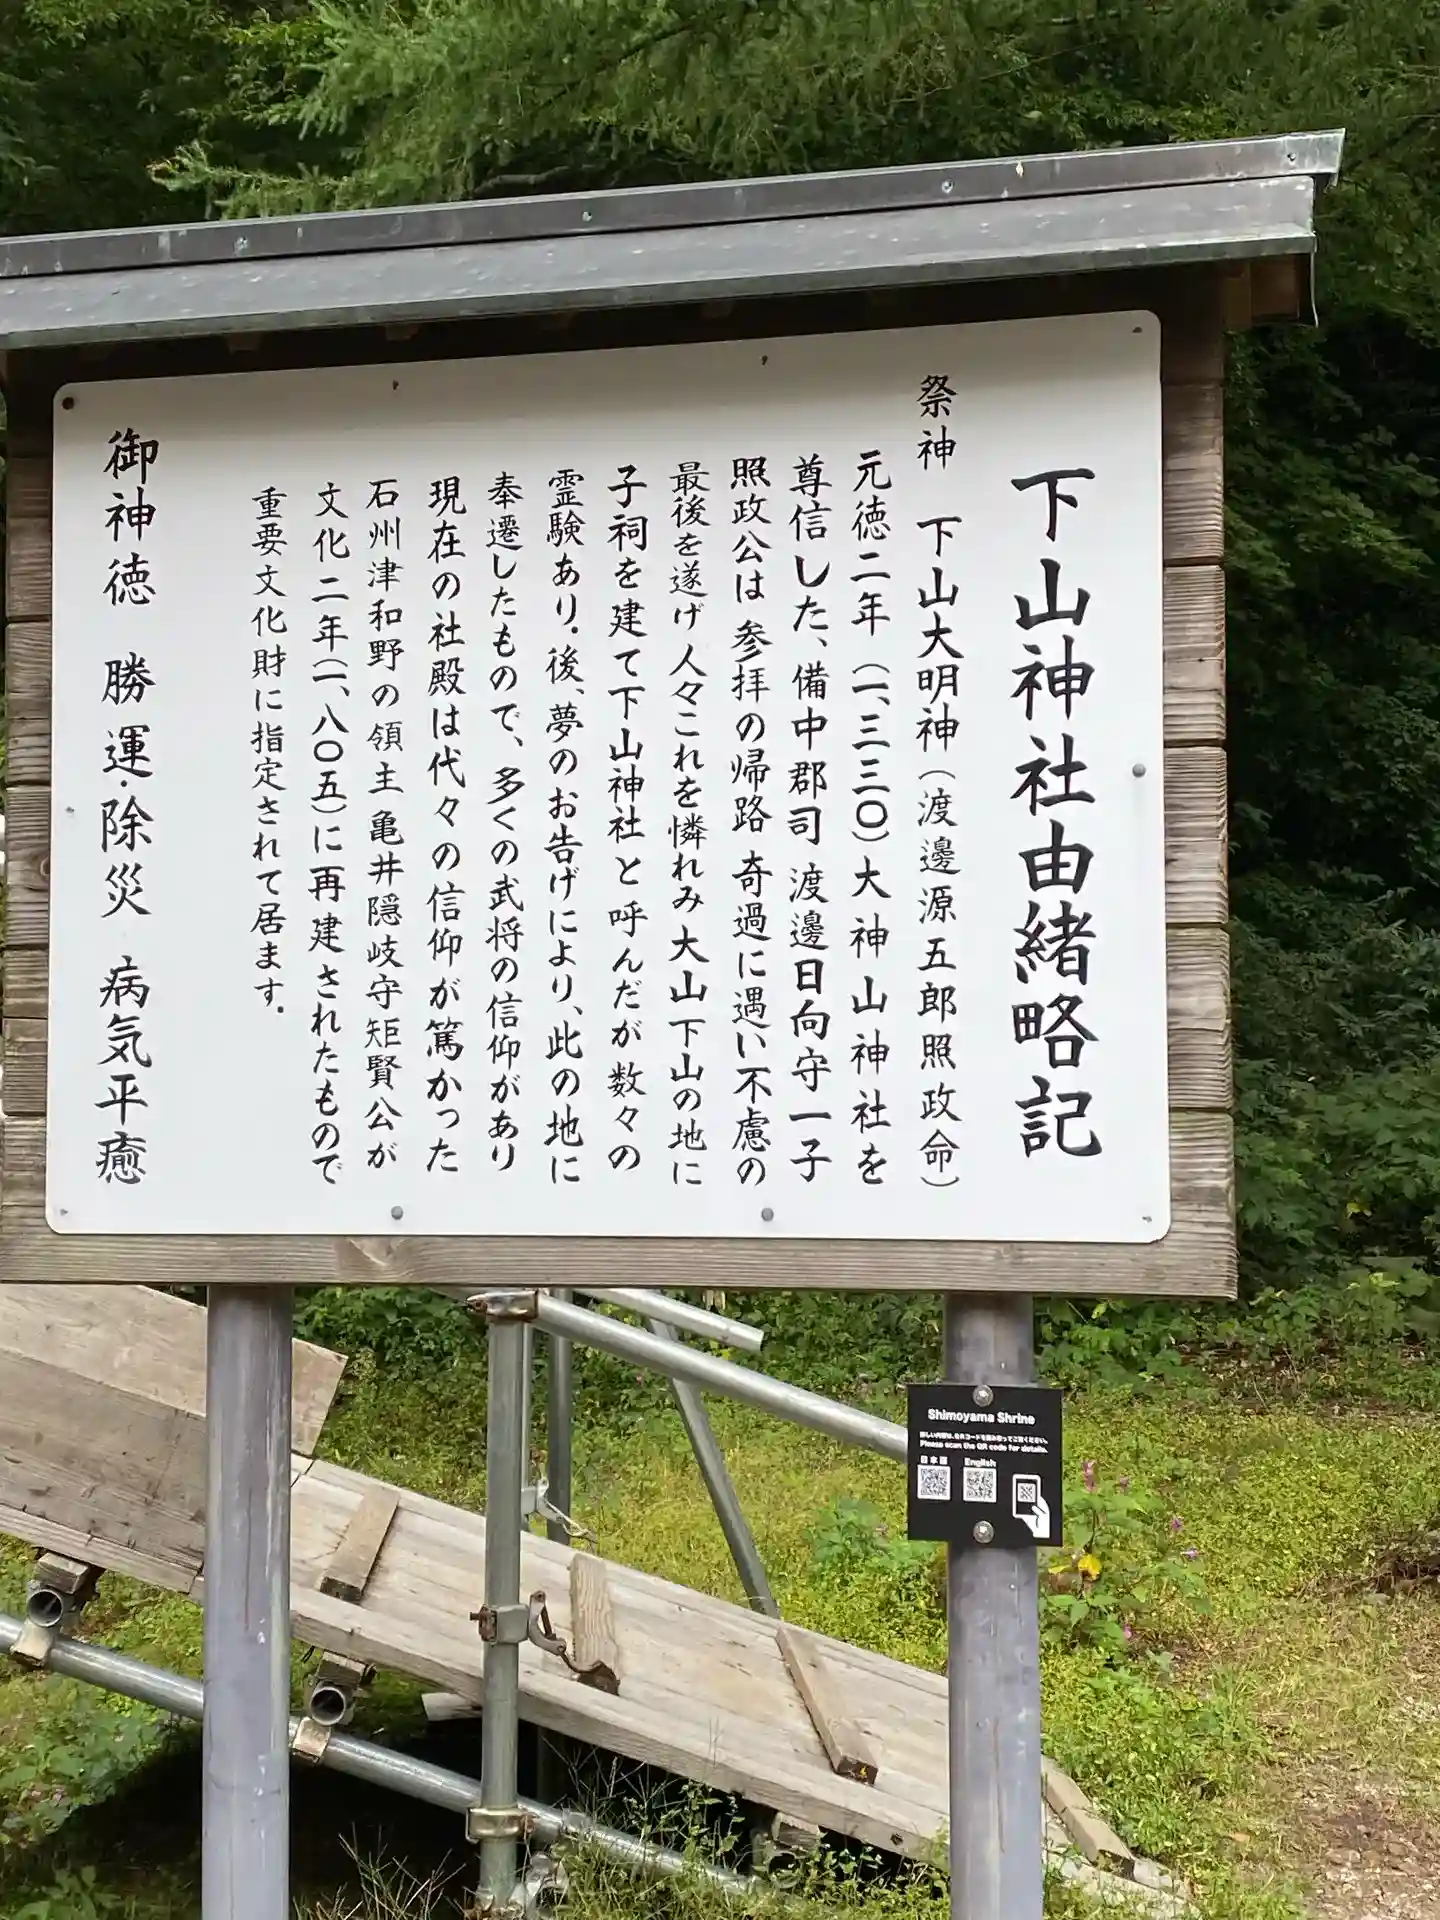 下山神社由緒略記
祭神 下山大明神（渡邊源五郎照政命）
元徳二年（一、三三〇）大神山神社を
尊信した、備中郡司 渡邊日向守一子
照政公は 参拝の帰路 奇過に遇い不慮の
最後を遂げ人々これを憐れみ大山下山の地に
子祠を建て下山神社と呼んだが 数々の
霊験あり・後、夢のお告げにより、此の地に
奉遷したもので、多くの武将の信仰があり
現在の社殿は代々の信仰が篤かった
石州津和野の領主亀井隠岐守矩賢公が
文化二年（一、八〇五）に再建されたもので
重要文化財に指定されて居ます.
御神徳 勝運・除災 病気平癒
Shimoyama Shrine
詳しい内容は、QRコードを読み取ってご覧ください。
Please scan the QR code for details.
日本語 English